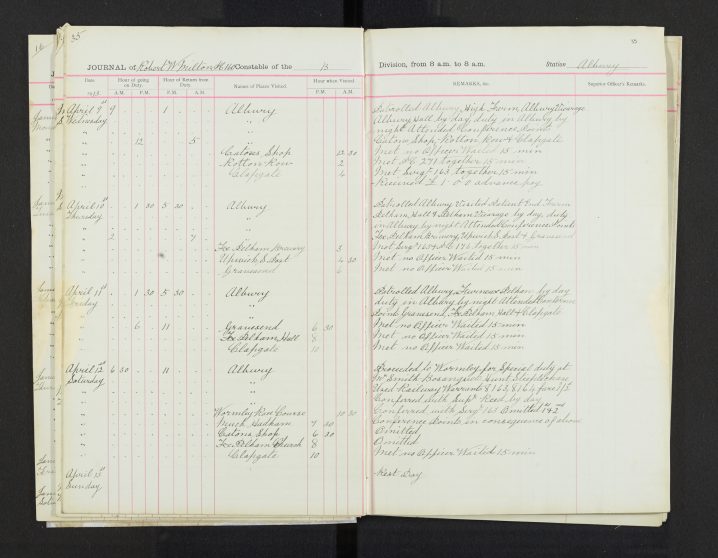 35
35
JOURNAL of Robert W Milton PC 160 Constable of the B Division, from 8 a.m. to 8 a.m. Station Albury
Date Hour of going on Duty. Hour of Return from Duty. Names of Places Visited. Hour when Visited. REMARKS, &c. Superior Officer's Remarks.
1913 A.M. P.M. P.M. A.M. P.M. A.M.
April 9th 9 1 Albury Patrolled Albury, High Farm, Albury Vicarage
Wednesday Albury Hall by day, duty in Albury by
night Attended Conference Points
12 5 Catons Shop, Rotton Row & Clapgate
Catons Shop 12 30 Met no Officer Waited 15 min
Rotton Row 2 Met PC 271 together 15 min
Clapgate 4 Met Sergt 163 together 15 min
Received £1-0-0 advance pay
April 10th 1 30 5 30 Albury Patrolled Albury Visited Patient End, Farm
Thursday Pelham Hall & Pelham Vicarage by day, duty
in Albury by night Attended Conference Points
2 7 Fx Pelham Brewery, Upwick & Gravesend
Fx Pelham Brewery 3 Met Sergt 163 & PC 176 together 15 min
Upwick 4 30 Met no Officer Waited 15 min
Gravesend 6 Met no Officer Waited 15 min
April 11th 1 30 5 30 Albury Patrolled Albury, Furneux Pelham by day
Friday duty in Albury by night Attended Conference
Points Gravesend, Fx Pelham Hall & Clapgate
6 11 Gravesend 6 30 Met no Officer Waited 15 min
Fx Pelham Hall 8 Met no Officer Waited 15 min
Clapgate 10 Met no Officer Waited 15 min
April 12th 6 30 11 Albury Proceeded to Wormley for Special duty at
Saturday Mr Smith Bosanquet Hunt Steeplechase
Used Railway Warrants 8163 8164 fare
Conferred with Supt Reed by day
Wormley Race Course 10 30 Conferred with Sergt 163 Omitted 1st & 2nd
Much Hadham 7 30 Conference Points in consequence of above
Catons Shop 6 30 Omitted
Fx Pelham Church 8 Omitted
Clapgate 10 Met no Officer Waited 15 min
April 13th
Sunday Rest Day